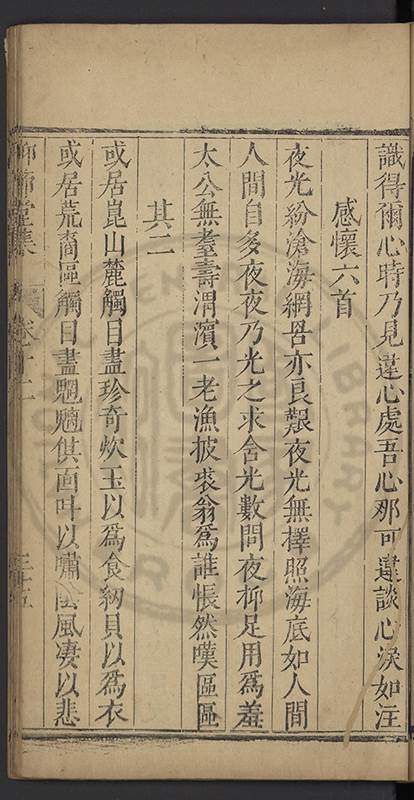 識得爾心時乃見違心處吾心那可違談心淚如注
感懷六首
夜光紛滄海網罟亦良艱夜光無擇照海底如人間
人間自多夜夜乃光之求舍光數問夜抑足用為羞
太公無耄壽渭濱一老漁披裘翁為誰悵然嘆區區
其二
或居崑山麓觸目盡珍奇炊玉以爲食紉貝以爲衣
或居荒裔區觸目盡魍魎俱面叶以嘯陰風凄以悲
堂集 卷十二 三十五